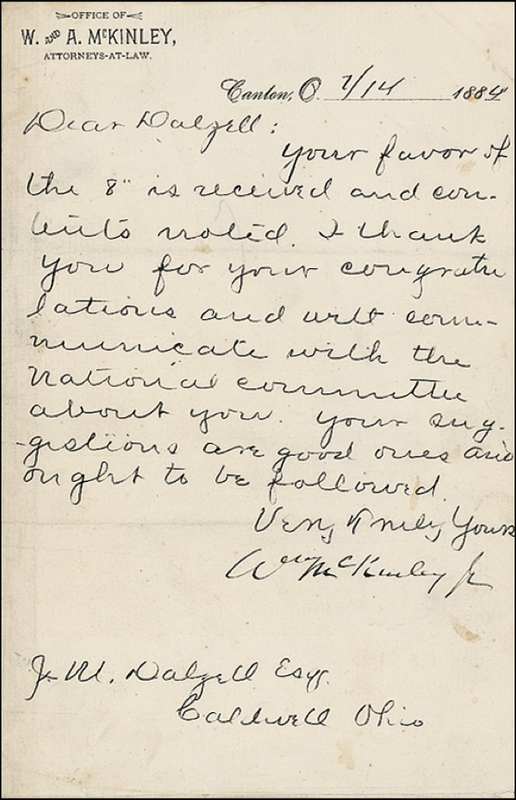 OFFICE OF
W. AND A. McKINLEY,
ATTORNEYS-AT-LAW.
Canton, O. 7/14 1884
Dear Dalzell:
Your favor of
the 8" is received and con-
tents noted. I thank
you for your congratu
lations and will com-
municate with the
National committee
about you. Your sug-
gestions are good ones and
ought to be followed.
Very truly Yours
Wm McKinley Jr
J. M. Dalzell Esqr.
Caldwell Ohio